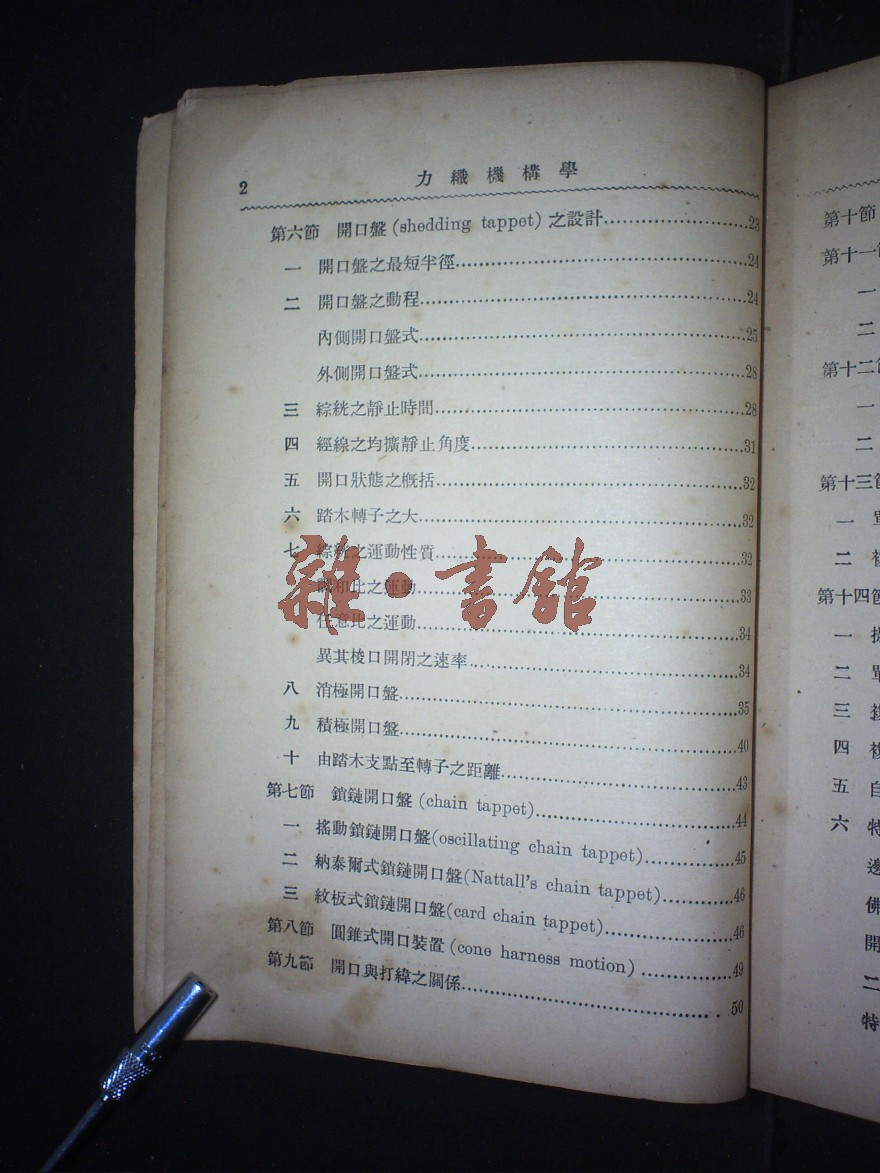 2
力織機構學
第六節 開口盤 (shedding tappet) 之設計……23
一 開口盤之最短半徑……24
二 開口盤之動程……24
內側開口盤式……25
外側開口盤式……28
三 綜絖之靜止時間……28
四 經線之均擴靜止角度……31
五 開口狀態之概括……32
六 踏木轉子之大……32
七 綜絖之運動性質……32
和比之運動……33
任意比之運動……34
異其梭口開閉之速率……34
八 消極開口盤……35
九 積極開口盤……40
十 由踏木支點至轉子之距離……43
第七節 鎖鏈開口盤 (chain tappet)……44
一 搖動鎖鏈開口盤(oscillating chain tappet)……45
二 納泰爾式鎖鏈開口盤(Nattall's chain tappet)……46
三 紋板式鎖鏈開口盤(card chain tappet)……46
第八節 圓錐式開口裝置 (cone harness motion)……49
第九節 開口與打緯之關係……50
雜·書館
第十節
第十一
一
二
第十二
一
二
第十三節
一
二
第十四節
一
二
三
四
五
六 特
邊
佛
開
二
特